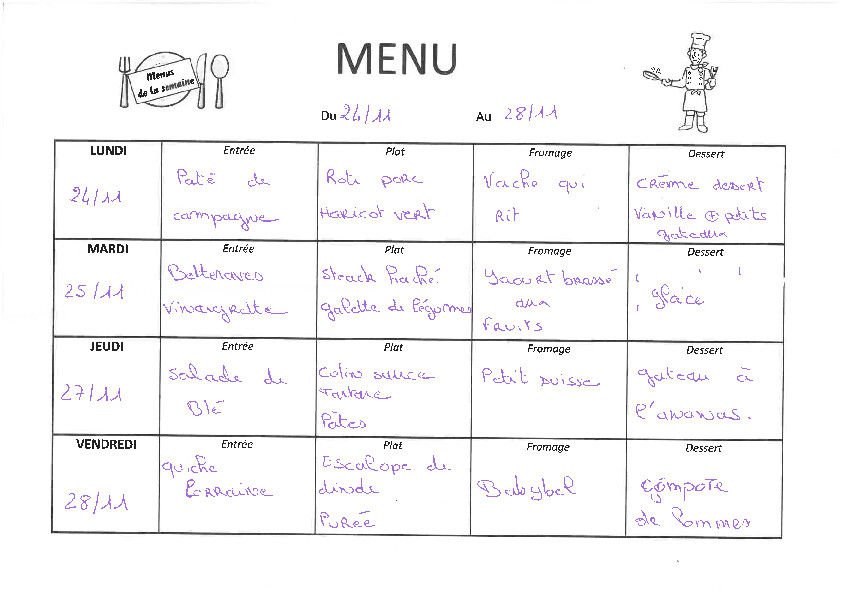 MENU
Menus
de la semaine
Du 24/11 Au 28/11
LUNDI
24/11
Entrée
Paté de
campagne
Plat
Roti porc
Haricot vert
Fromage
Vache qui
Rit
Dessert
Crème dessert
Vanille ⊕ petits
gateaux
MARDI
25/11
Entrée
Betteraves
Vinaigrette
Plat
Steack haché
galette de légumes
Fromage
Yaourt brassé
aux
fruits
Dessert
glace
JEUDI
27/11
Entrée
Salade de
Blé
Plat
Colin sauce
Tartare
Pâtes
Fromage
Petit suisse
Dessert
gateau à
l'ananas.
VENDREDI
28/11
Entrée
quiche
Lorraine
Plat
Escalope de
dinde
Purée
Fromage
Babybel
Dessert
Compote
de Pommes